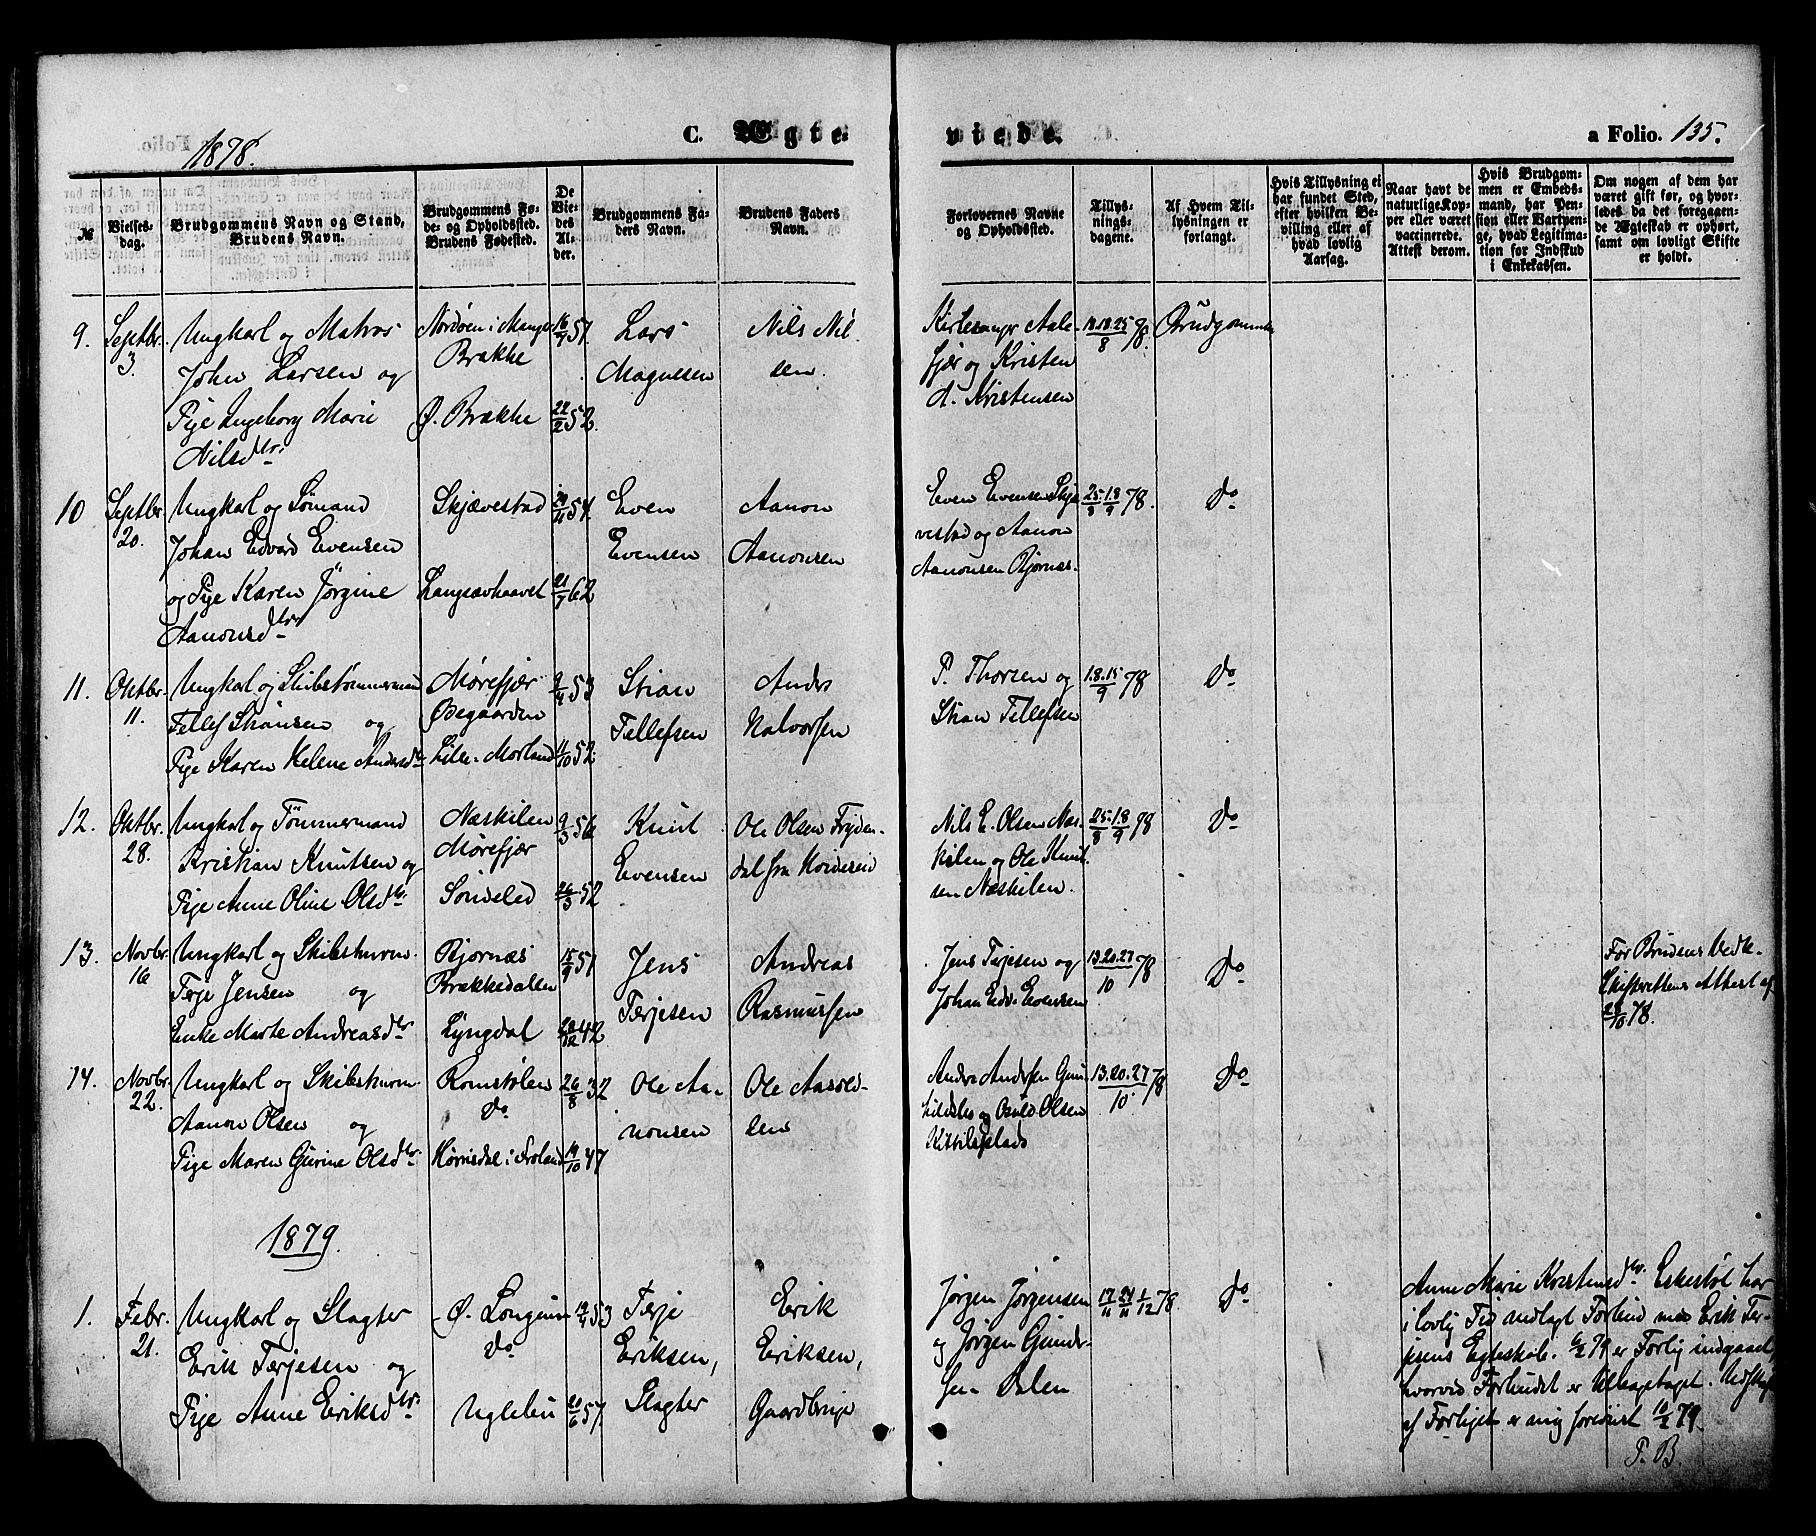 1878.
C. Ægte-
viede.
a Folio. 135.
№
Vielses-
dag.
Brudgommens Navn og Stand,
Brudens Navn.
Brudgommens Fø-
de- og Opholdssted.
Brudens Fødested.
De
Vie-
des
Al-
der.
Brudgommens Fa-
ders Navn.
Brudens Faders
Navn.
Forlovernes Navne
og Opholdssted.
Tillys-
nings-
dagene.
Af Hvem Til-
lysningen er
forlangt.
Hvis Tillysning ei
har fundet Sted,
efter hvilken Be-
villing eller af
hvad lovlig
Aarsag.
Naar havt de
naturlige Kop-
per eller været
vaccinerede.
Attest derom.
Hvis Brudgom-
men er Embeds-
mand, har Pen-
sion eller Vartpen-
ge, hvad Legitima-
tion for Indskud
i Enkekassen.
Om nogen af dem har
været gift før, og hvor-
ledes da det foregaaen-
de Ægteskab er ophørt,
samt om lovligt Skifte
er holdt.
9. Septbr. 3.
Ungkarl og Matros
John Larsen og
Pige Ingeborg Marie
Nilsdtr.
Nordøen i Manger
Brække
Ø. Brække
16/7 51.
22/2 52.
Lars
Magnesen
Nils Nil-
sen.
Aale-
fjær og Kristen
A. Kristensen
11.18.25/8 78.
Brudgommen
10 Septbr. 20.
Ungkarl og Sømand
Johan Edvard Evensen
og Pige Karen Jörgine
Aanonsdtr
Skjævestad
Langsævhaavet
20/11 54.
21/7 62
Even
Evensen
Aanon
Aanonsen
Even Evensen Skjæ-
vestad og Aanon
Aanonsen Bjornæs.
25.1.8/8 9 78.
Do
11. Oktbr. 11.
Ungkarl og Skibstømmermand
Tellef Stiansen og
Pige Karen Helene Andersdtr
Mørefjær
Ødegaarden
Lille-Morland
9/4 53
11/10 52.
Stian
Tellefsen
Anders
Halvorsen
P. Thorsen og
Stian Tellefsen
1.8.15/9 78
Do
12. Oktbr. 28.
Ungkarl og Tömmermand
Kristian Knutsen og
Pige Anne Oline Olsdtr
Næskilen
Mørefjær
Söndeled
9/3 56
26/3 52
Knut
Evensen
Ole Olsen Fryden-
dal fra Hvideseid
Nils E. Olsen Næs-
kilen og Ole Knut-
sen Næskilen.
25.1.8/8 9 78
Do
13. Novbr. 16
Ungkarl og Skibsturm.
Terje Jensen og
Enke Marte Andreasdtr
Bjornæs
Brækkedallen
Lyngdal
15/9 51
28/12 42
Jens
Terjesen
Andreas
Rasmussen
Jens Terjesen og
Johan Edv. Evensen
13.20.27/10 78
Do
For Brudens Vedk.
Skifterettens Attest af
28/10 78.
14. Novbr. 22.
Ungkarl og Skibsturm.
Aanon Olsen og
Pige Maren Gurine Olsdtr
Romstølen
Do
i Froland
26/8 32
14/10 47
Ole Aa-
nonsen
Ole Aasold-
sen
Anders Andersen Gun-
og Osuld Olsen
Kittilsplads
13.20.27/10 78
Do
1879.
1. Febr. 21.
Ungkarl og Slagter
Erik Terjesen og
Pige Anne Eriksdtr
Ø. Longum
Do
Uglebu
14/4 53
20/6 57.
Terje
Eriksen,
Slagter
Erik
Eriksen,
Gaardbruge
Jørgen Jörgensen
og Jörgen Gunder-
sen Dalen
17/11 24/11 1/12 78.
Do
Anne Marie Kristensdtr. Eskestøl har
i lovlig Tid nedlagt Forbud mod Erik Ter-
jesens Egteskab. 6/2 79 er Forlig indgaaet,
hvorved Forbudet er tilbagetaget. Udskrift
af Forliget er mig forevist 10/2 79.
P. B.